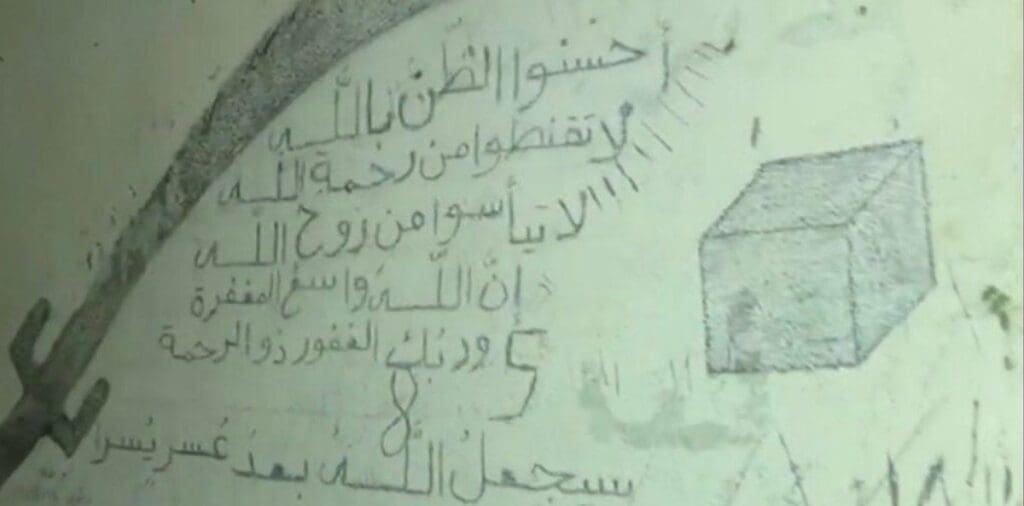 أحسنوا الظَّن باللَّه
لا تقنطوا من رحمة اللَّه
لا تيأسوا من رَوح اللَّه
إنَّ اللَّه واسع المغفرة
وربك الغفور ذو الرحمة
سيجعلُ اللَّهُ بعدَ عُسرٍ يُسراً